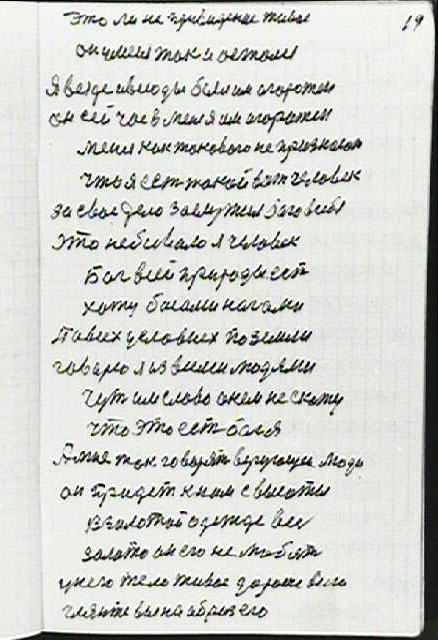 19
Это ли не привидение живое
он имел так и остался
Я везде и всюды был им огорожен
он сей час в меня им огорожен
меня как такового не признавал
что я ест такой вот человек
за свое дело заслужил
Это небывало я человек
Бог всей природы ест
хожу босыми ногами
По всех условиех по земли
говорю я из всими людями
чут им слово онем не скажу
что это ест бог я
А мне так говорят верующие люди
он придет к ним с высоты
в золотой одежде вес
золото он его не любит
у него тело живое дороже всего
гляите вы на образ его